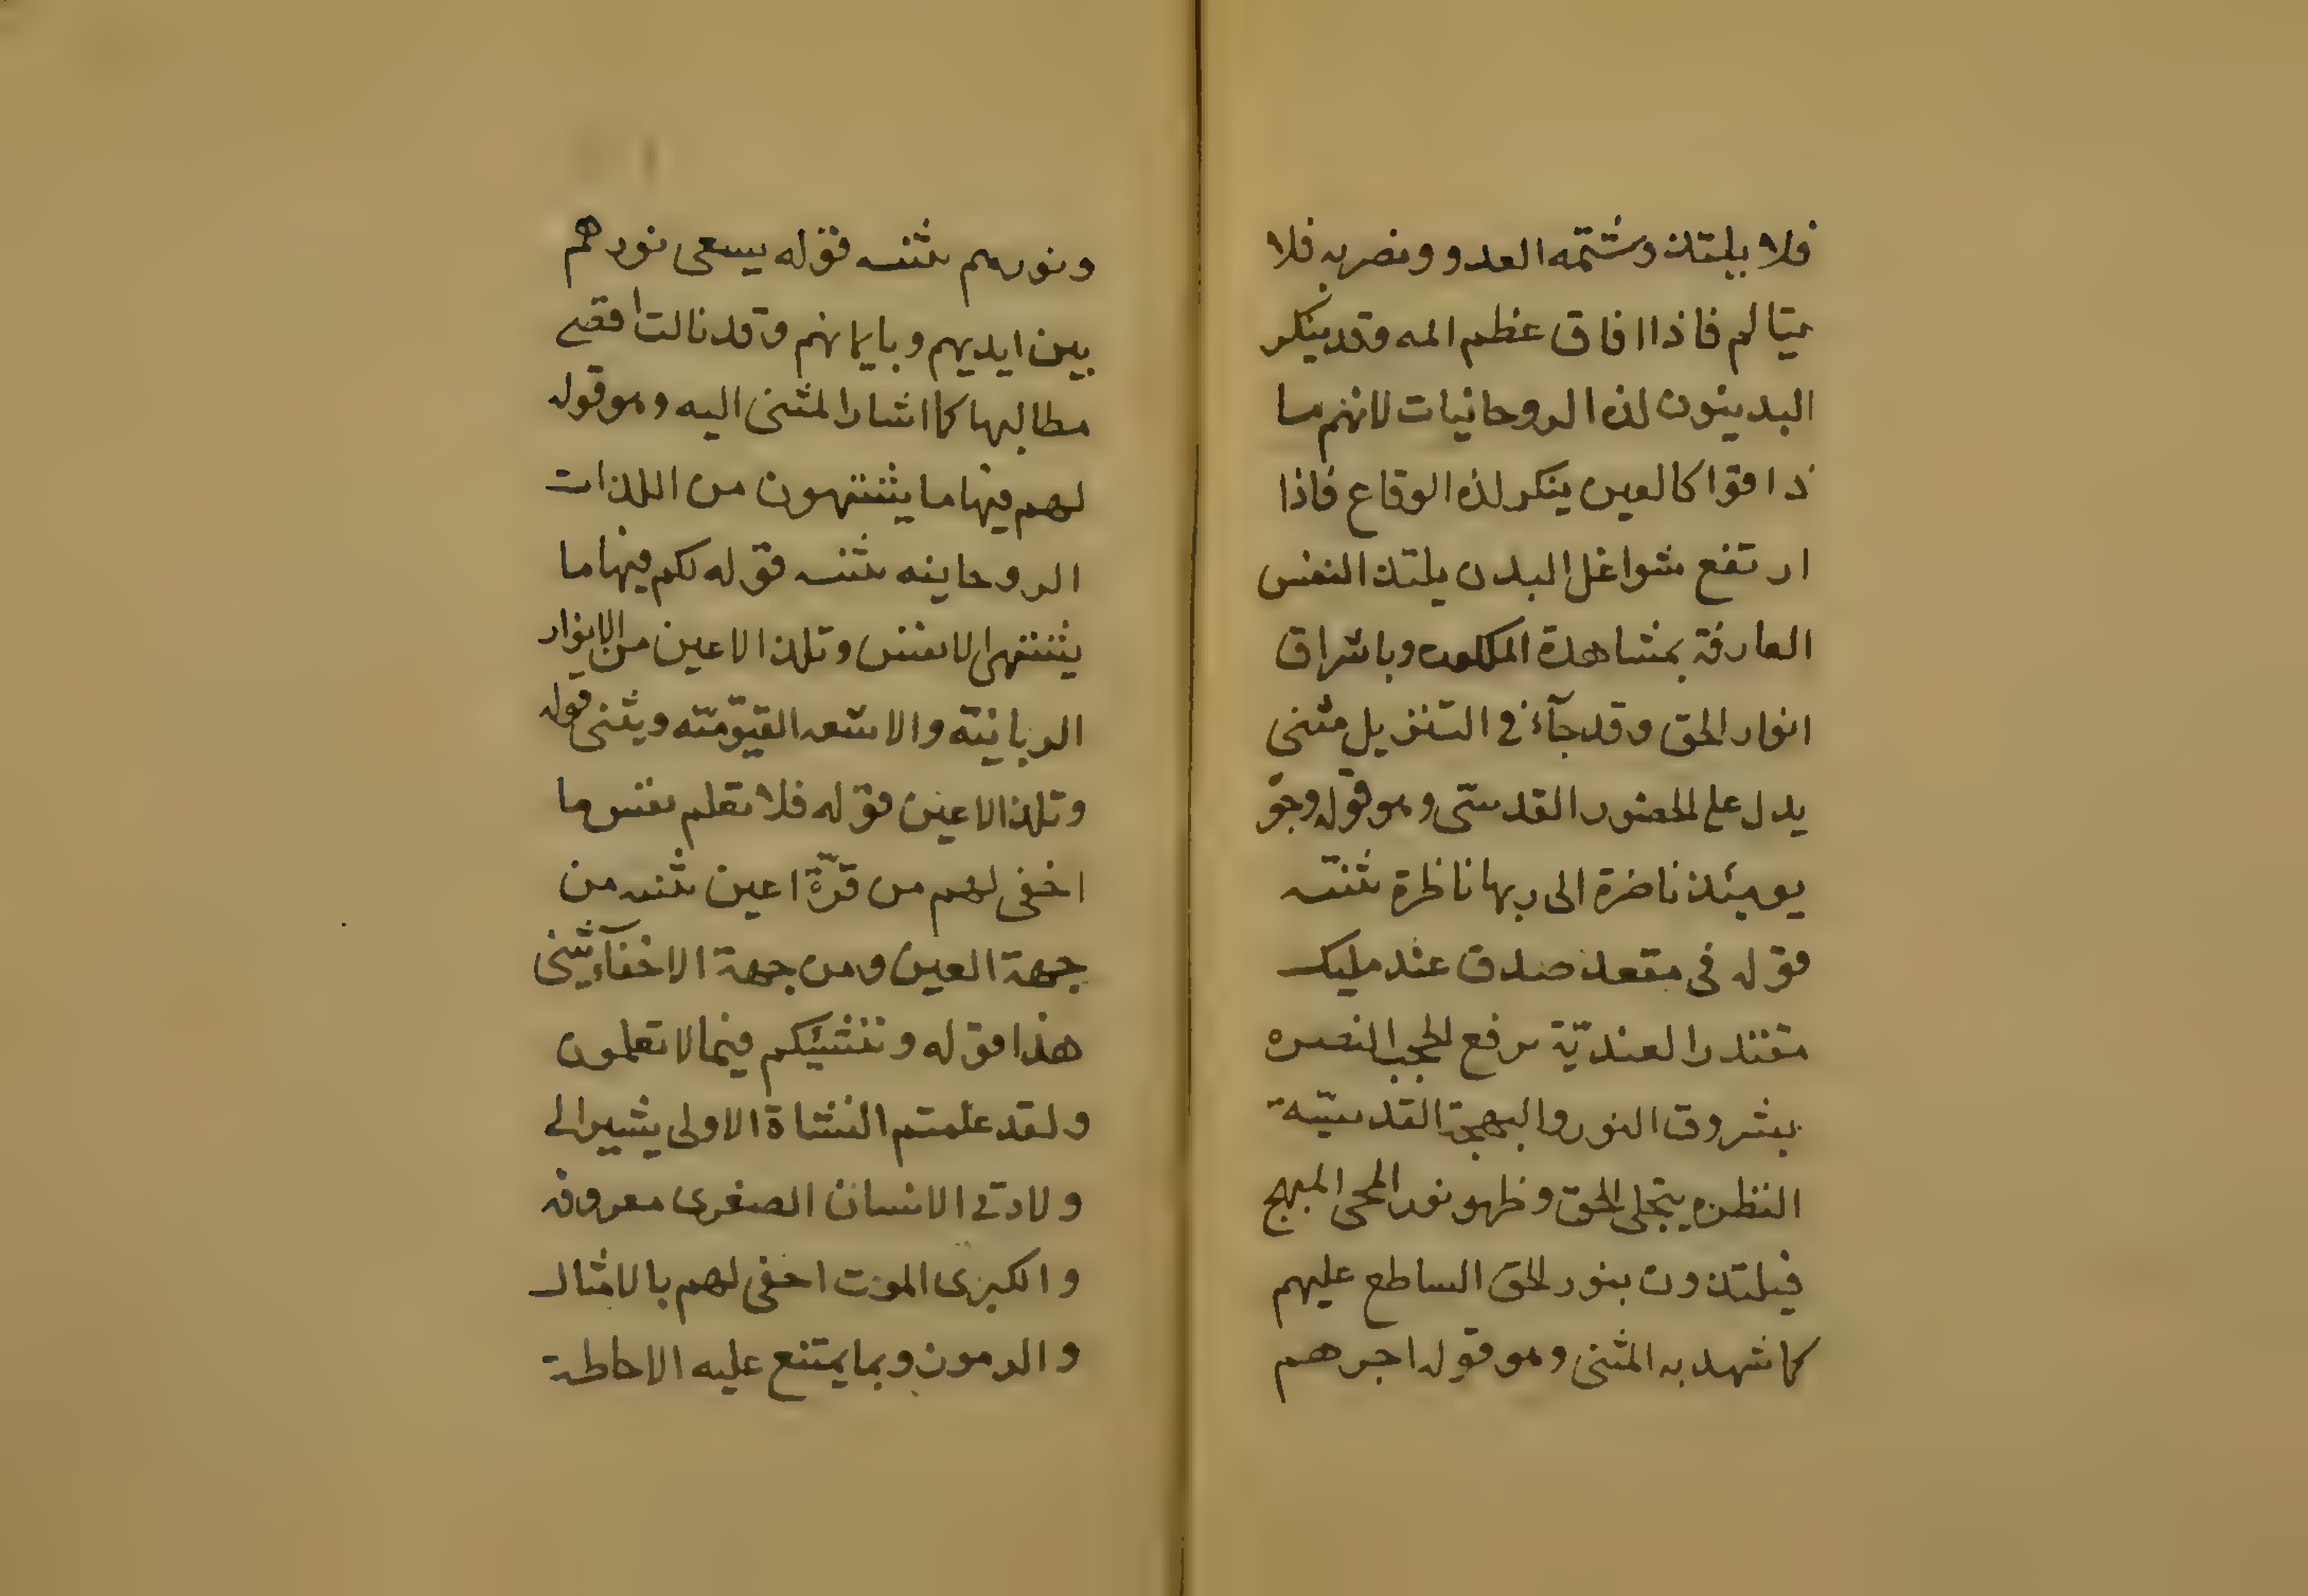 فلا يلتذ وشتمه العدو ونضربه فلا
يتالم فاذا افاق عظم المه وقد ينكر
البدنيون لذه الروحانيات لانهم ما
ذاقوا كالعين ينكر لذه الوقاع فاذا
ارتفع شواغل البدن يلتذ النفس
العارفة بمشاهدة الملكوت وباشراق
انوار الحق وقد جآء في التنزيل مثنى
يدل على الحضور القدسى وهو قوله وجوه
يومئذ ناضرة الى ربها ناظرة ثنته
قوله فى مقعد صدق عند مليك
مقتدر العنديّة رفع الحجب النضره
بشروق النور والبهجة القدسيّة
النظره يتجلى الحق وظهور نور المحى المبهج
فيلتذون بنور الحق الساطع عليهم
كما شهد به المثنى وهو قوله اجرهم
ونورهم ثنته قوله يسعى نورهم
بين ايديهم وبايمانهم وقد نالت اقصى
مطالبها كما اشار المثنى اليه وهو قوله
لهم فيها ما يشتهون من اللذات
الروحانيه ثنته قوله لكم فيها ما
يشتهى الانفس وتلذ الاعين من الانوار
الربانيّه والاشعه القيوّميّه ويثنى قوله
وتلذ الاعين قوله فلا تعلم نفس ما
اخفى لهم من قرّة اعين ثنته من
جهة العين ومن جهة الاخفآء يثنى
هذا قوله وننشئكم فيما لا تعلمون
ولقد علمتم النشاة الاولى يشير الى
ولادتى الانسان الصغرى معروفه
والكبرى الموت اخفى لهم بالامثال
والرموز وبما يمتنع عليه الاحاطة